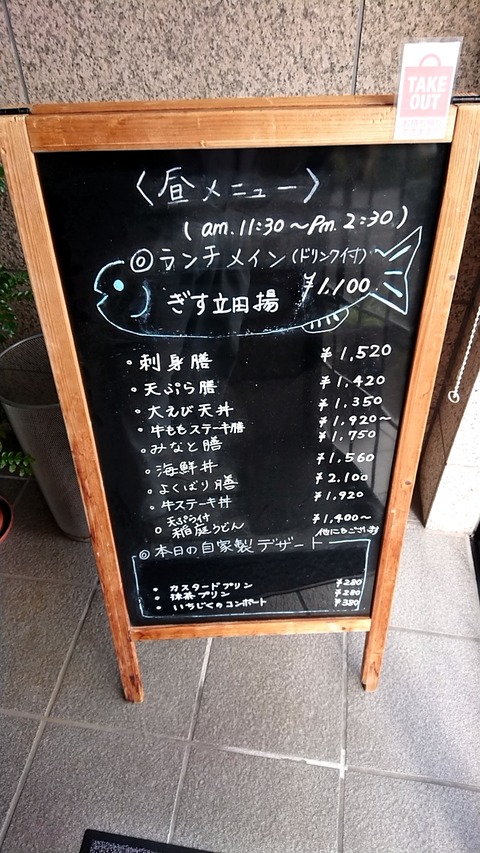 TAKE
OUT
〈昼メニュー〉
(am.11:30～Pm.2:30)
◎ランチメイン(ドリンク付)
¥1,100
ぎす立田揚
・刺身膳 ¥1,520
・天ぷら膳 ¥1,420
・大えび天丼 ¥1,350
・牛ももステーキ膳 ¥1,920～
・みなと膳 ¥1,750
・海鮮丼 ¥1,560
・よくばり膳 ¥2,100
・牛ステーキ丼 ¥1,920
・天ぷら付
稲庭うどん ¥1,400～
他にもございます
◎本日の自家製デザート
・カスタードプリン ¥280
・抹茶プリン ¥280
・いちじくのコンポート ¥380